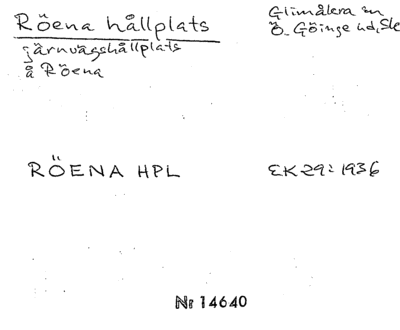 Röena hållplats
järnvägshållplats
å Röena
Glimåkra sn
Ö. Göinge hd, Sk
RÖENA HPL
EK 29: 1936
Nr 14640